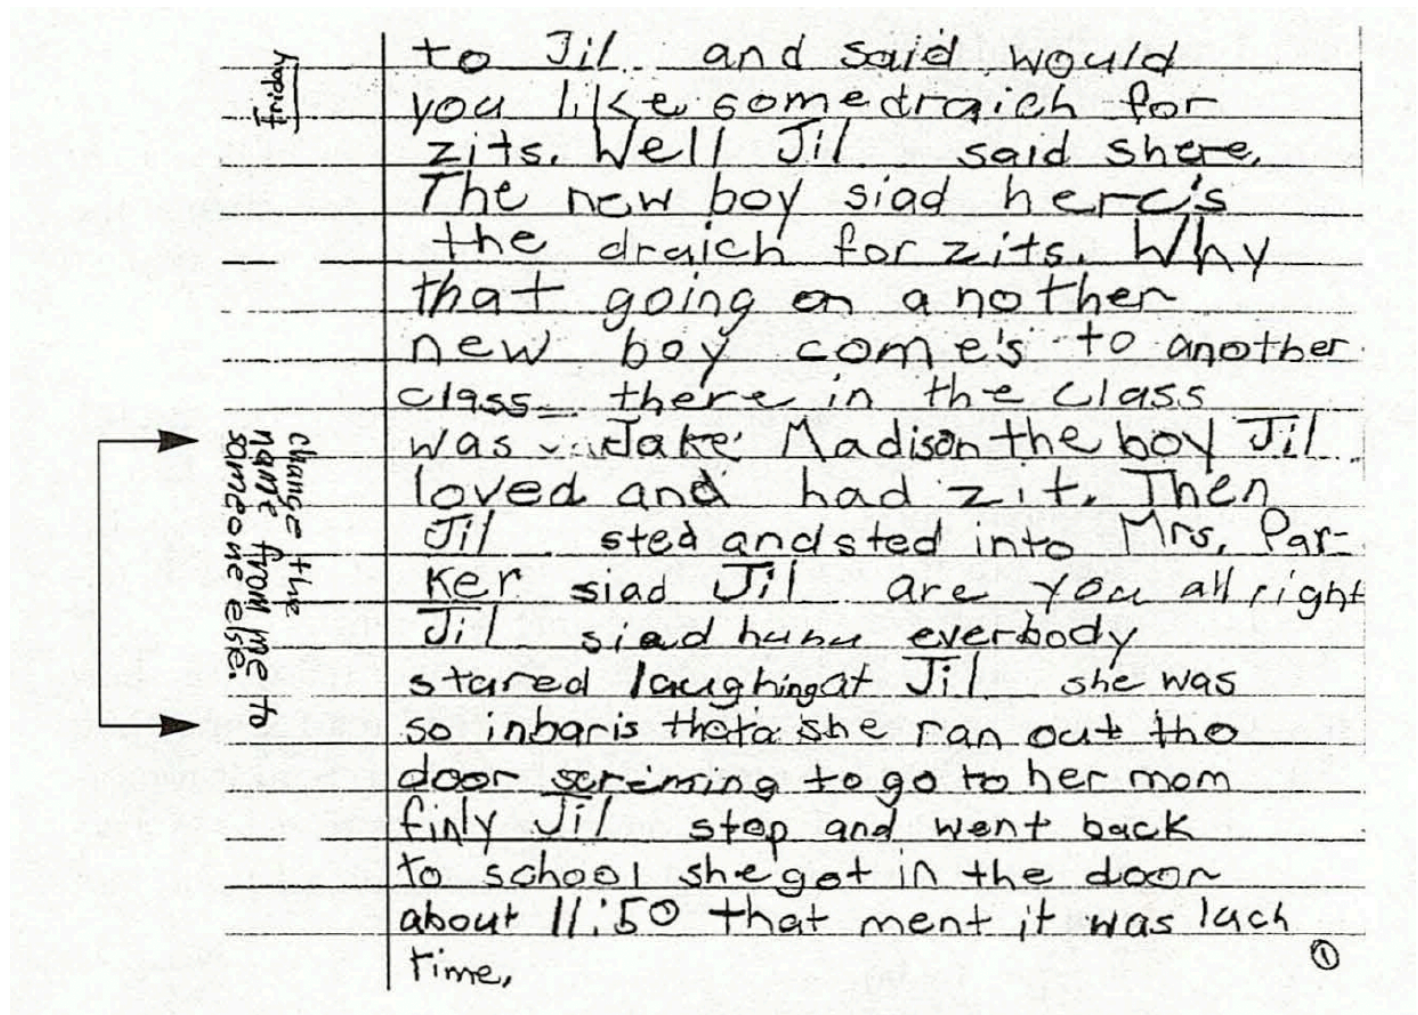 Friday
to Jil and said would
you like some draich for
zits. Well Jil said shere.
The new boy siad here's
the draich for zits. Why
that going on another
new boy come's to another
class there in the class
was Jake Madison the boy Jil
loved and had zit. Then
Jil sted and sted into Mrs. Par-
ker siad Jil are you all right
Jil siad huhu everbody
stared laughing at Jil she was
so inbaris theta she ran out the
door scriming to go to her mom
finly Jil stop and went back
to school she got in the door
about 11:50 that ment it was lach
time.
change the
name from me to
someone else.
1